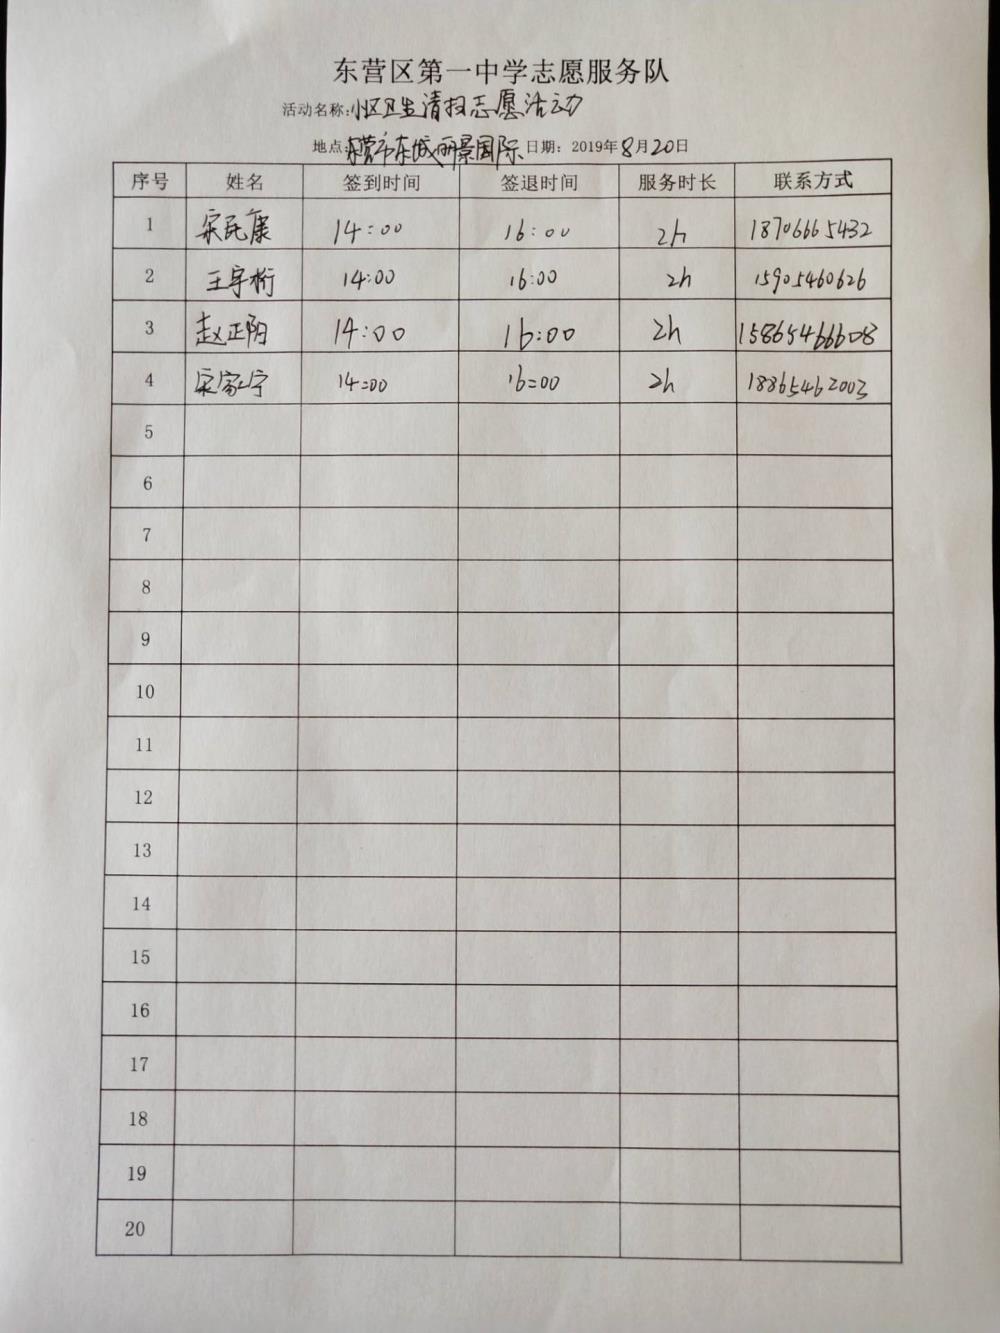 东营区第一中学志愿服务队
活动名称:小区卫生清扫志愿活动
地点:东营市东城丽景国际 日期: 2019年8月20日
序号 姓名 签到时间 签退时间 服务时长 联系方式
1 宋民康 14:00 16:00 2h 18706665432
2 王宇桁 14:00 16:00 2h 15905460626
3 赵正阳 14:00 16:00 2h 15865466608
4 宋家宁 14:00 16:00 2h 18865462003
5
6
7
8
9
10
11
12
13
14
15
16
17
18
19
20